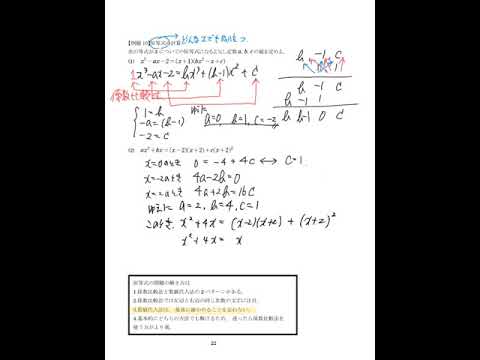 【例題 10】恒等式の計算　どんなxでも成り立つ
次の等式がxについての恒等式になるように定数a,b,cの値を定めよ。
(1) x³−ax−2=(x+1)(bx²−x+c)
1x³−ax−2=bx³+(b−1)x²+c
係数比較法
1=b
−a=(b−1)
−2=c
ゆえに
a=0, b=1, c=−2
b −1 c
1 1
b −1 c
b −1 1
b b−1 0 c
(2) ax²+bx=(x−2)(x+2)+c(x+2)²
x=0のとき 0=−4+4c ⟷ c=1.
x=−2のとき 4a−2b=0
x=2のとき 4a+2b=16c
ゆえに a=2, b=4, c=1
このとき x²+4x=(x−2)(x+2)+(x+2)²
x²+4x= x
恒等式の問題の解き方は
1.係数比較法と数値代入法の2パターンがある。
2.係数比較法では左辺と右辺の同じ次数の文字に注目。
3.数値代入法は、最後に確かめることを忘れない。
4.基本的にどちらの方法でも解けるため、迷ったら係数比較法を
使う方がより楽。
22